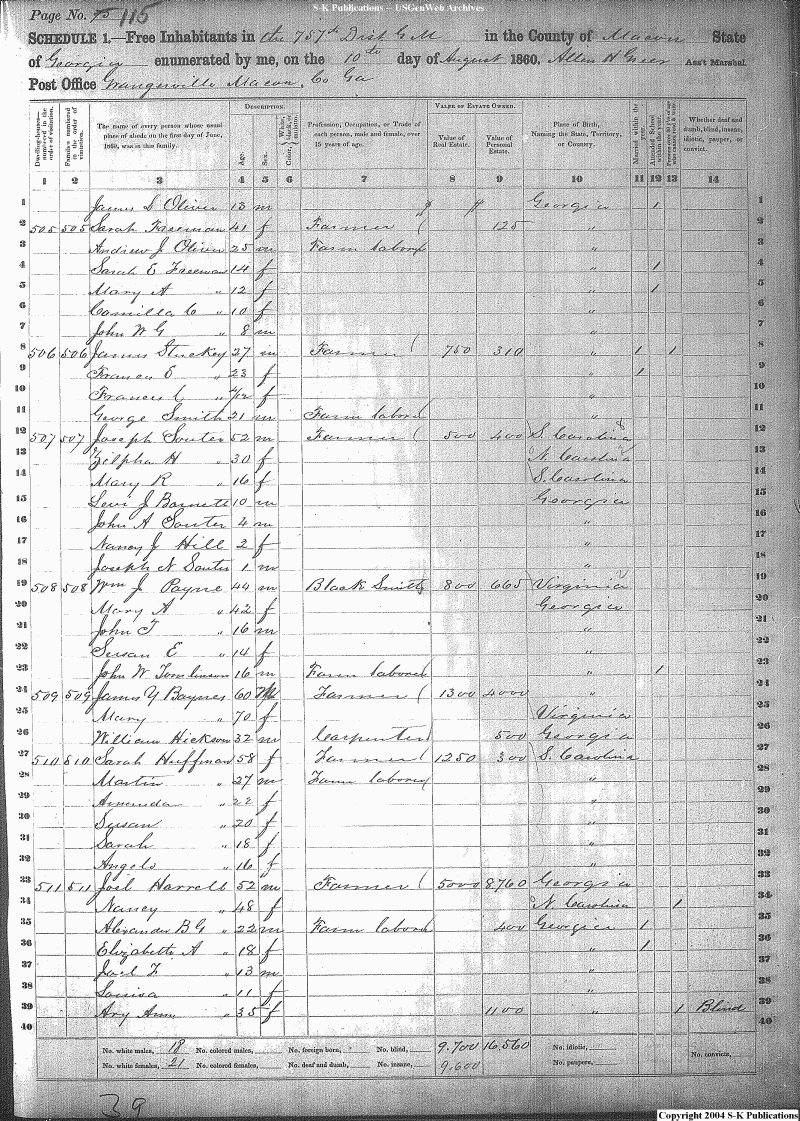 S-K Publications – USGenWeb Archives
Page No. 75 115
SCHEDULE 1.—Free Inhabitants in the 757th Dist G M in the County of Macon State
of Georgia enumerated by me, on the 10th day of August 1860. Allen H Greer Ass't Marshal.
Post Office Grangerville Macon Co Ga
DESCRIPTION. VALUE OF ESTATE OWNED.
Dwelling-houses—numbered in the order of visitation. Families numbered in the order of visitation. The name of every person whose usual place of abode on the first day of June, 1860, was in this family. Age. Sex. Color, White, black, or mulatto. Profession, Occupation, or Trade of each person, male and female, over 15 years of age. Value of Real Estate. Value of Personal Estate. Place of Birth, Naming the State, Territory, or Country. Married within the year. Attended School within the year. Whether deaf and dumb, blind, insane, idiotic, pauper, or convict.
1 2 3 4 5 6 7 8 9 10 11 12 13 14
1 James S Oliver 13 m $ $ Georgia 1 1
2 505 505 Sarah Freeman 41 f Farmer 125 " 2
3 Andrew J Oliver 25 m Farm laborer " 3
4 Sarah E Freeman 14 f " 1 4
5 Mary A " 12 f " 1 5
6 Camilla C " 10 f " 6
7 John W G " 8 m " 7
8 506 506 James Stuckey 27 m Farmer 750 310 " 1 1 8
9 Frances E " 23 f " 1 9
10 Frances C " 4/12 f " 10
11 George Smith 21 m Farm laborer " 11
12 507 507 Joseph Souter 52 m Farmer 500 400 S. Carolina 12
13 Zilpha H " 30 f N. Carolina 13
14 Mary R " 16 f S. Carolina 14
15 Levi J Barnett 10 m Georgia 15
16 John A Souter 4 m " 16
17 Nancy J Hill 2 f " 17
18 Joseph N Souter 1 m " 18
19 508 508 Wm J Payne 44 m Black Smith 800 665 Virginia 19
20 Mary A " 42 f Georgia 20
21 John T " 16 m " 21
22 Susan E " 14 f " 22
23 John W Tomlinson 16 m Farm laborer " 1 23
24 509 509 James Y Baynes 60 M Farmer 1300 4000 " 24
25 Mary " 70 f Virginia 25
26 William Hickson 32 m Carpenter 500 Georgia 26
27 510 510 Sarah Huffman 58 f Farmer 1250 300 S. Carolina 27
28 Martin " 27 m Farm laborer " 28
29 Amanda " 22 f " 29
30 Susan " 20 f " 30
31 Sarah " 18 f " 31
32 Angelo " 16 f " 32
33 511 511 Joel Harrell 52 m Farmer 5000 8760 Georgia 33
34 Nancy " 48 f N. Carolina 1 34
35 Alexander B G " 22 m Farm laborer 400 Georgia 1 35
36 Elizabeth A " 18 f " 1 36
37 Joel F " 13 m " 37
38 Louisa " 11 f " 38
39 Ary Ann " 35 f 1100 " 1 Blind 39
40 40
No. white males, 18 No. colored males, No. foreign born, No. blind, 9.700 16.560 No. idiotic, No. convicts,
No. white females, 21 No. colored females, No. deaf and dumb, No. insane, 9.600 No. paupers,
39
Copyright 2004 S-K Publications